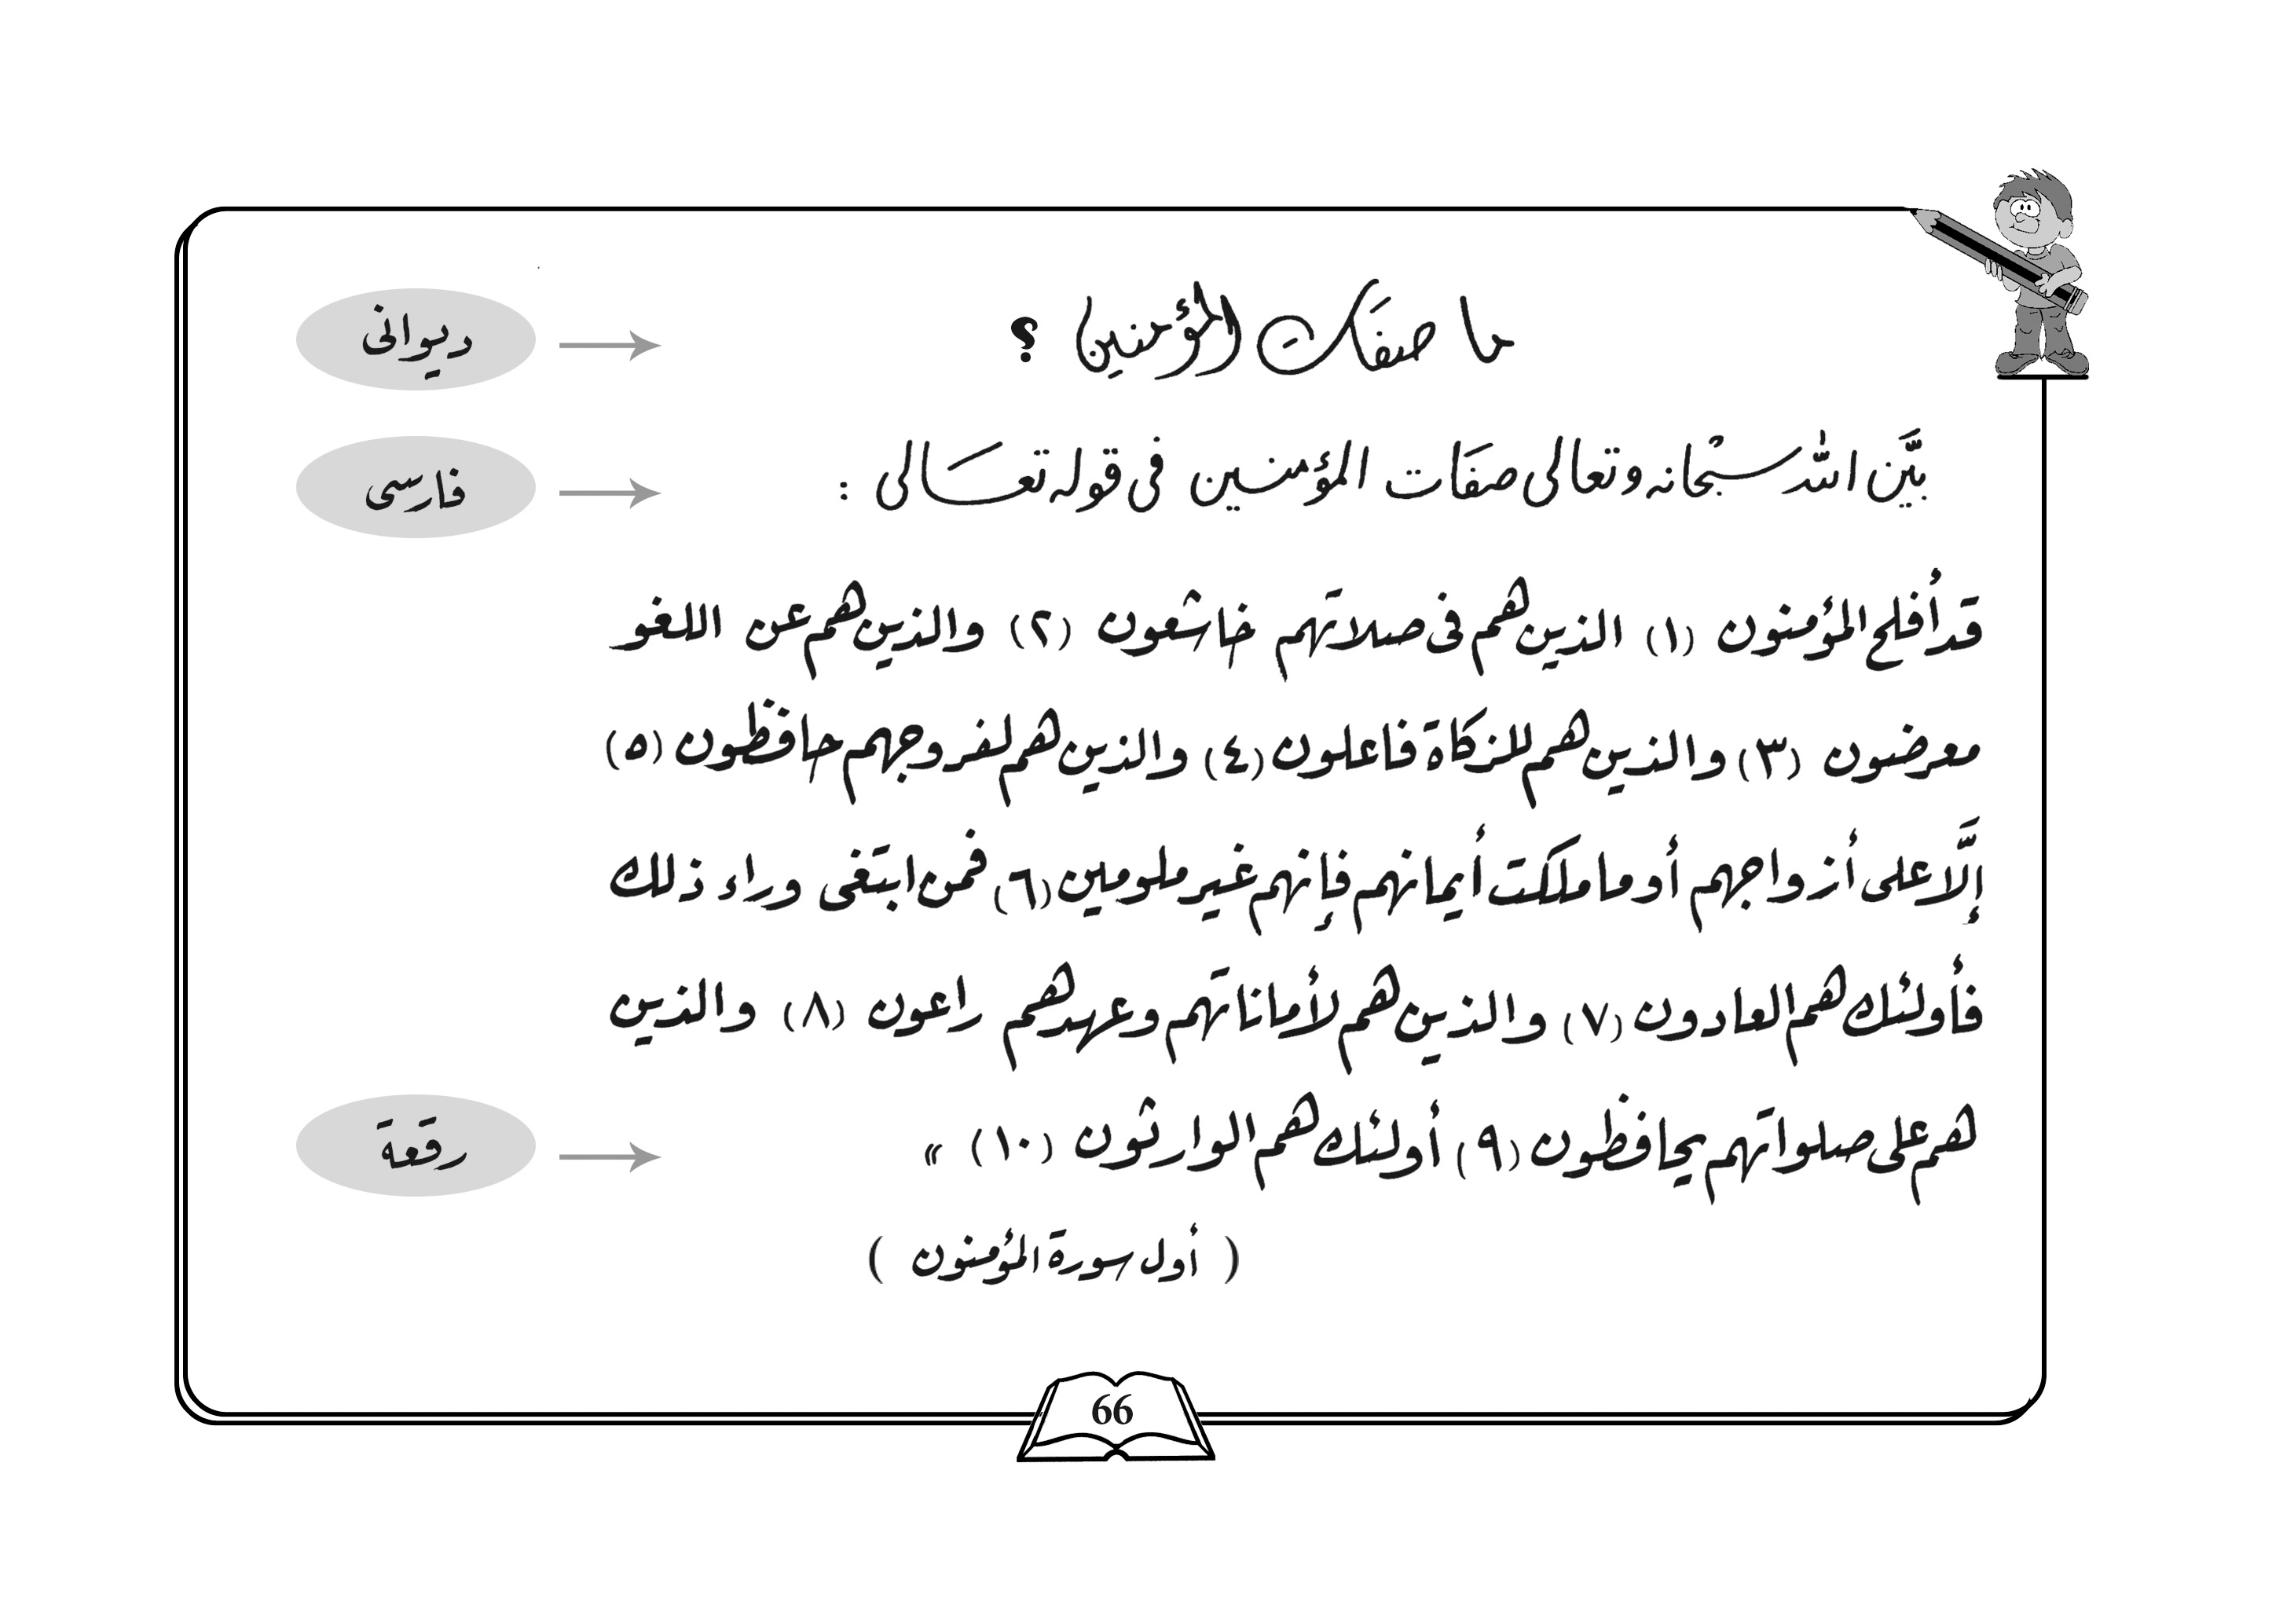 ما صفات المؤمنين ؟
ديوانى
بيَّن اللّٰه سبْحانه وتعالى صفَات المؤمنين فى قوله تعَالى :
فارسى
قد أفلح المؤمنون (١) الذين هم فى صلاتهم خاشعون (٢) والذين هم عن اللغو
معرضون (٣) والذين هم للزكاة فاعلون (٤) والذين هم لفروجهم حافظون (٥)
إلَّا على أزواجهم أو ما ملكت أيمانهم فإنهم غير ملومين (٦) فمن ابتغى وراء ذلك
فأولئك هم العادون (٧) والذين هم لأماناتهم وعهدهم راعون (٨) والذين
هم على صلواتهم يحافظون (٩) أولئك هم الوارثون (١٠) »
رقعة
( أول سورة المؤمنون )
66